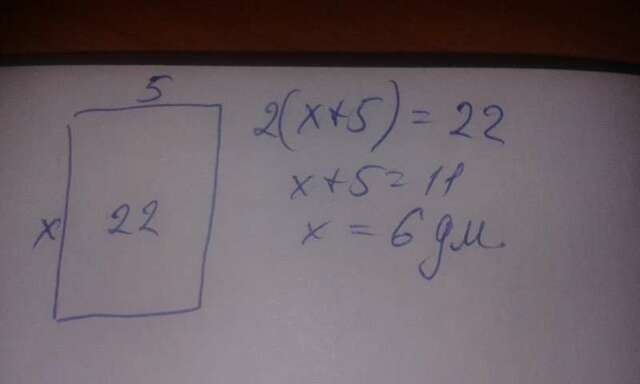 5
x
22
2(x+5) = 22
x+5=11
x = 6 дм